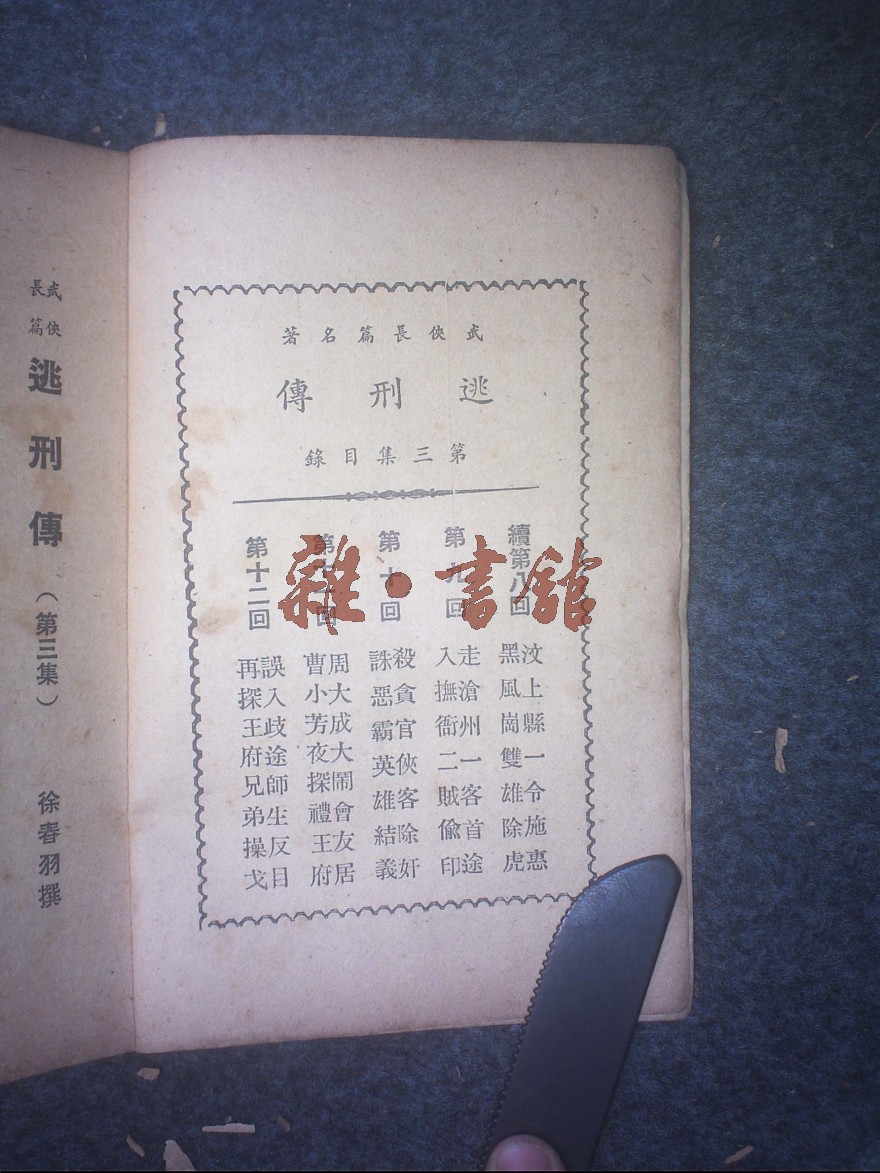 武俠長篇名著
逃刑傳
第三集目錄
續第八回
汶上縣一令施惠
黑風崗雙雄除虎
第九回
走滄州一客首途
入撫衙二賊偸印
第十回
殺貪官俠客除奸
誅惡霸英雄結義
第十一回
周大成大鬧會友居
曹小芳夜探禮王府
第十二回
誤入歧途師生反目
再探王府兄弟操戈
武俠長篇
逃刑傳
(第三集)
徐春羽撰
雜·書館